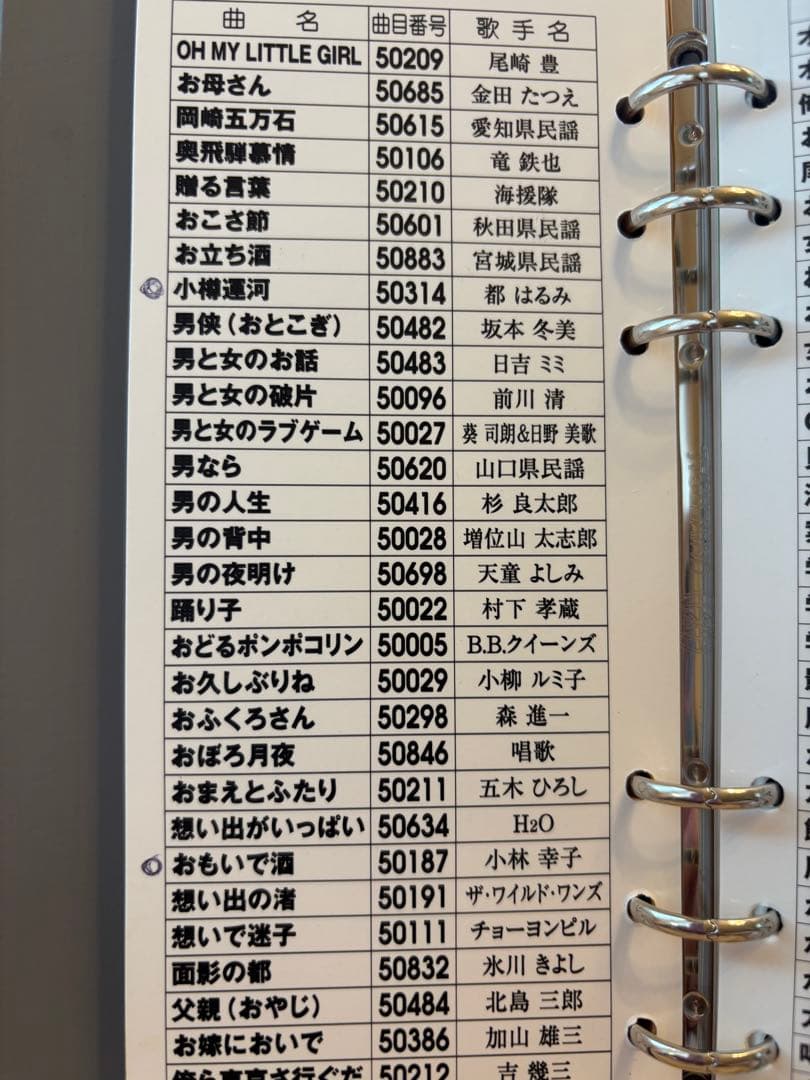 曲 名 曲目番号 歌手名
OH MY LITTLE GIRL 50209 尾崎 豊
お母さん 50685 金田 たつえ
岡崎五万石 50615 愛知県民謡
奥飛騨慕情 50106 竜 鉄也
贈る言葉 50210 海援隊
おこさ節 50601 秋田県民謡
お立ち酒 50883 宮城県民謡
小樽運河 50314 都 はるみ
男侠(おとこぎ) 50482 坂本 冬美
男と女のお話 50483 日吉 ミミ
男と女の破片 50096 前川 清
男と女のラブゲーム 50027 葵 司朗&日野 美歌
男なら 50620 山口県民謡
男の人生 50416 杉 良太郎
男の背中 50028 増位山 太志郎
男の夜明け 50698 天童 よしみ
踊り子 50022 村下 孝蔵
おどるポンポコリン 50005 B.B.クイーンズ
お久しぶりね 50029 小柳 ルミ子
おふくろさん 50298 森 進一
おぼろ月夜 50846 唱歌
おまえとふたり 50211 五木 ひろし
想い出がいっぱい 50634 H2O
おもいで酒 50187 小林 幸子
想い出の渚 50191 ザ・ワイルド・ワンズ
想いで迷子 50111 チョーヨンピル
面影の都 50832 氷川 きよし
父親(おやじ) 50484 北島 三郎
お嫁においで 50386 加山 雄三
俺ら東京さ行ぐだ 50212 吉 幾三